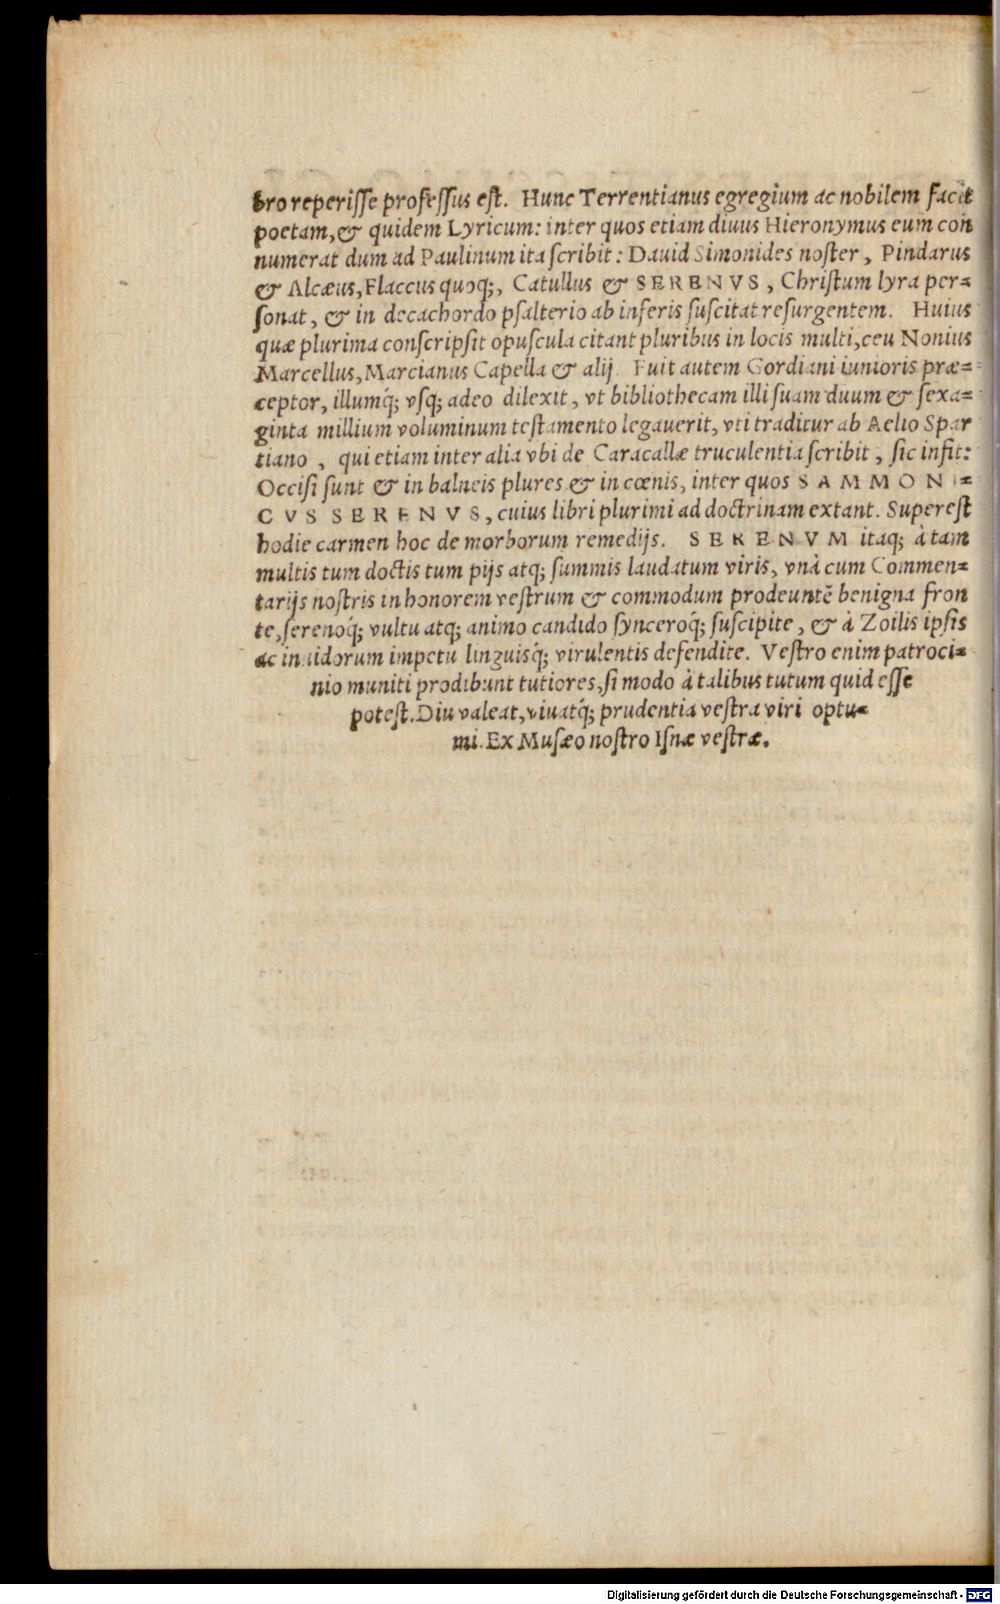 bro reperisse professus est. Hunc Terrentianus egregium ac nobilem facit
poetam, & quidem Lyricum: inter quos etiam diuus Hieronymus eum con
numerat dum ad Paulinum ita scribit: Dauid Simonides noster, Pindarus
& Alcæus, Flaccus quoq;, Catullus & SERENVS, Christum lyra per-
sonat, & in decachordo psalterio ab inferis suscitat resurgentem. Huius
quæ plurima conscripsit opuscula citant pluribus in locis multi, ceu Nonius
Marcellus, Marcianus Capella & alij. Fuit autem Gordiani iunioris præ-
ceptor, illumq́; vsq; adeo dilexit, vt bibliothecam illi suam duum & sexa-
ginta millium voluminum testamento legauerit, vti traditur ab Aelio Spar
tiano, qui etiam inter alia vbi de Caracallæ truculentia scribit, sic infit:
Occisi sunt & in balneis plures & in cœnis, inter quos SAMMONI-
CVS SERENVS, cuius libri plurimi ad doctrinam extant. Superest
hodie carmen hoc de morborum remedijs. SERENVM itaq; à tam
multis tum doctis tum pijs atq; summis laudatum viris, vnà cum Commen-
tarijs nostris in honorem vestrum & commodum prodeuntē benigna fron
te, serenoq́; vultu atq; animo candido synceroq́; suscipite, & à Zoilis ipsis
ac inuidorum impetu linguisq́; virulentis defendite. Vestro enim patroci-
nio muniti prodibunt tutiores, si modo à talibus tutum quid esse
potest. Diu valeat, viuatq́; prudentia vestra viri optu-
mi. Ex Musæo nostro Isnæ vestræ.
Digitalisierung gefördert durch die Deutsche Forschungsgemeinschaft - DFG